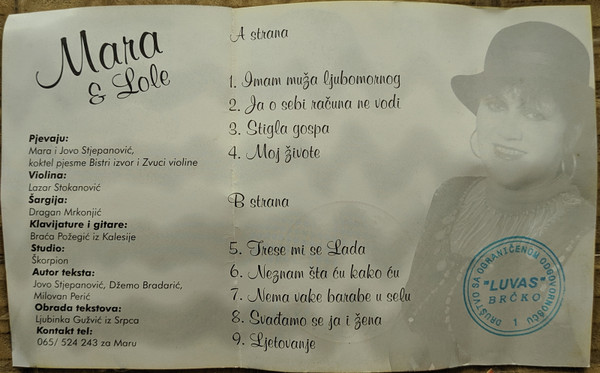 Mara
& Lole
Pjevaju:
Mara i Jovo Stjepanović,
koktel pjesme Bistri izvor i Zvuci violine
Violina:
Lazar Stokanović
Šargija:
Dragan Mrkonjić
Klavijature i gitare:
Braća Požegić iz Kalesije
Studio:
Škorpion
Autor teksta:
Jovo Stjepanović, Džemo Bradarić,
Milovan Perić
Obrada tekstova:
Ljubinka Gužvić iz Srpca
Kontakt tel:
065/ 524 243 za Maru
A strana
1. Imam muža ljubomornog
2. Ja o sebi računa ne vodi
3. Stigla gospa
4. Moj živote
B strana
5. Trese mi se Lada
6. Neznam šta ću kako ću
7. Nema vake barabe u selu
8. Svađamo se ja i žena
9. Ljetovanje
DRUŠTVO SA OGRANIČENOM ODGOVORNOŠĆU
"LUVAS"
BRČKO
1